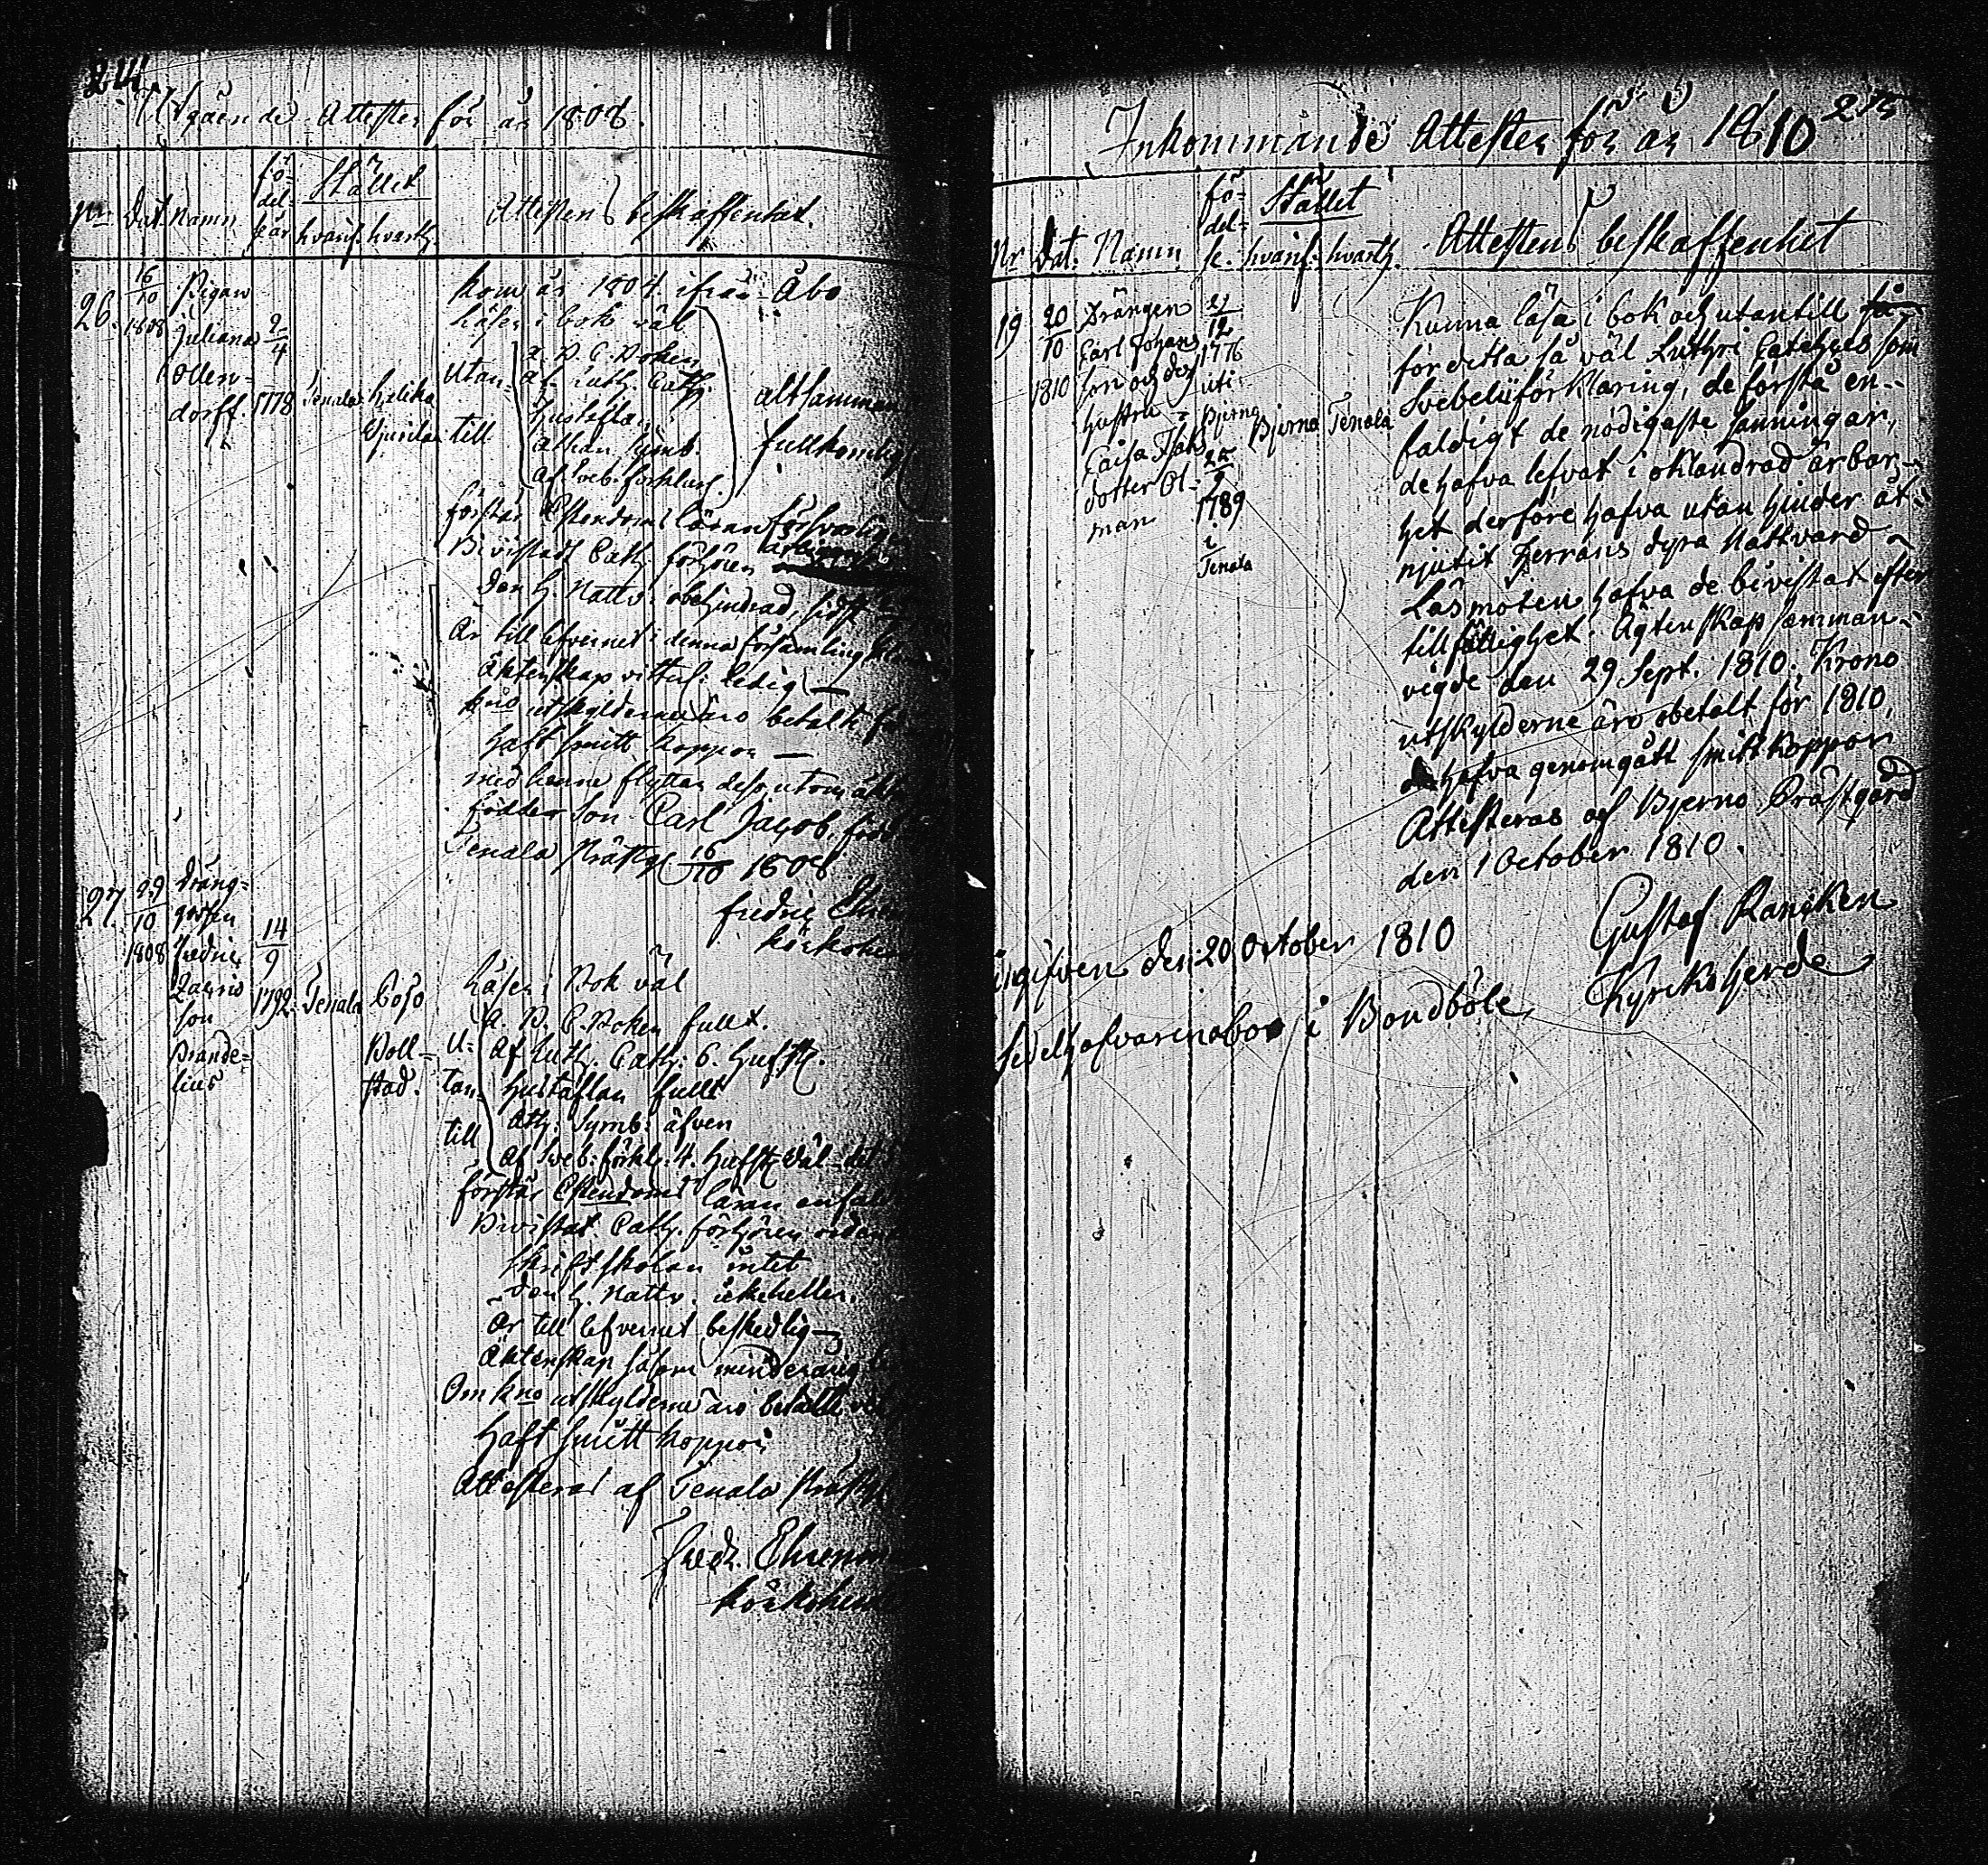 214
Utgående Attester för år 1808.
Nr Dat. Namn fö-
del-
seår Stället
hvarif. hvarth.
Attestens beskaffenhet.
26. 16/10 1808
Pigan
Juliana
Ollen-
dorff.
2/4
1778
Tenala
kom år 1804 ifrån Åbo
Läser i bok väl
Utan-
till
A. B. C. Boken
Af Luth. Cath.
Hustaflan
Athan. Symb.
Af Sveb. förklar.
altsamman
fullkomlig
förstår Christendoms läran försvarlig
Bivistadt Cath. förhören
den H. Nattv. obehindrad, sidst
Är till lefvernet i denna församling
Äktenskap vitterl. ledig —
kno utskylderna äro betalte för
haft smitt koppor —
med henne flyttar dess utom äkt
födder son Carl Jacob, född
Tenala Prästg. 16/10 1808
Fredric Ehren
körkoher
27. 29/10 1808
Dräng-
gossen
Fredric
Zacris
son
Brande-
lius
14/9
1792
Tenala
Poso
Boll-
stad.
Läser i Bok väl
U-
tan-
till
A. B. C. Boken fullt.
Af Luth. Cath. 6. hufst.
Hustaflan fullt
Ath. Symb. äfven
Af Sveb. förkl. 4. hufst. väl
förstår Christendoms läran enfald
Bivistat Cath. förhören
skriftskolan intet
den H. Nattv. ickeheller.
Är till lefvernet beskedlig —
Äktenskap såsom minderårig
Om kno utskylderne äro betalte
haft smitt koppor
Attesteras af Tenala Prästg.
Fredr. Ehren
körkoher
215
Inkommande Attester för år 1810
Nr Dat. Namn fö-
del-
se. Stället
hvarif. hvarth.
Attestens beskaffenhet
19 20/10 1810
Drängen
Carl Johans
son och dess
hustru
Caisa Isaks
dotter Öl-
man
21/12
1776
uti
Bjerno
25/9
1789
i
Tenala
Bjerno Tenala
Kunna läsa i bok och utantill
fördetta så väl Lutheri Cateches som
Svebelii förklaring, de förstå en-
faldigt de nödigaste sanningar,
de hafva lefvat i oklandrad ärbar-
het derföre hafva utan hinder åt-
njutit Herrans dyra Nattvard
Läsmöten hafva de bivistat efter
tillfällighet. Ägtenskap samman-
vigde den 29 Sept. 1810; Krono
utskylderne äro obetalt för 1810,
de hafva genomgått smittkoppor
Attesteras af Bjerno Prästgård
den 1 October 1810.
Gustaf Rancken
Kyrkoherde
Ingifven den 20 October 1810
Sedelhafvaren bor i Bondböle